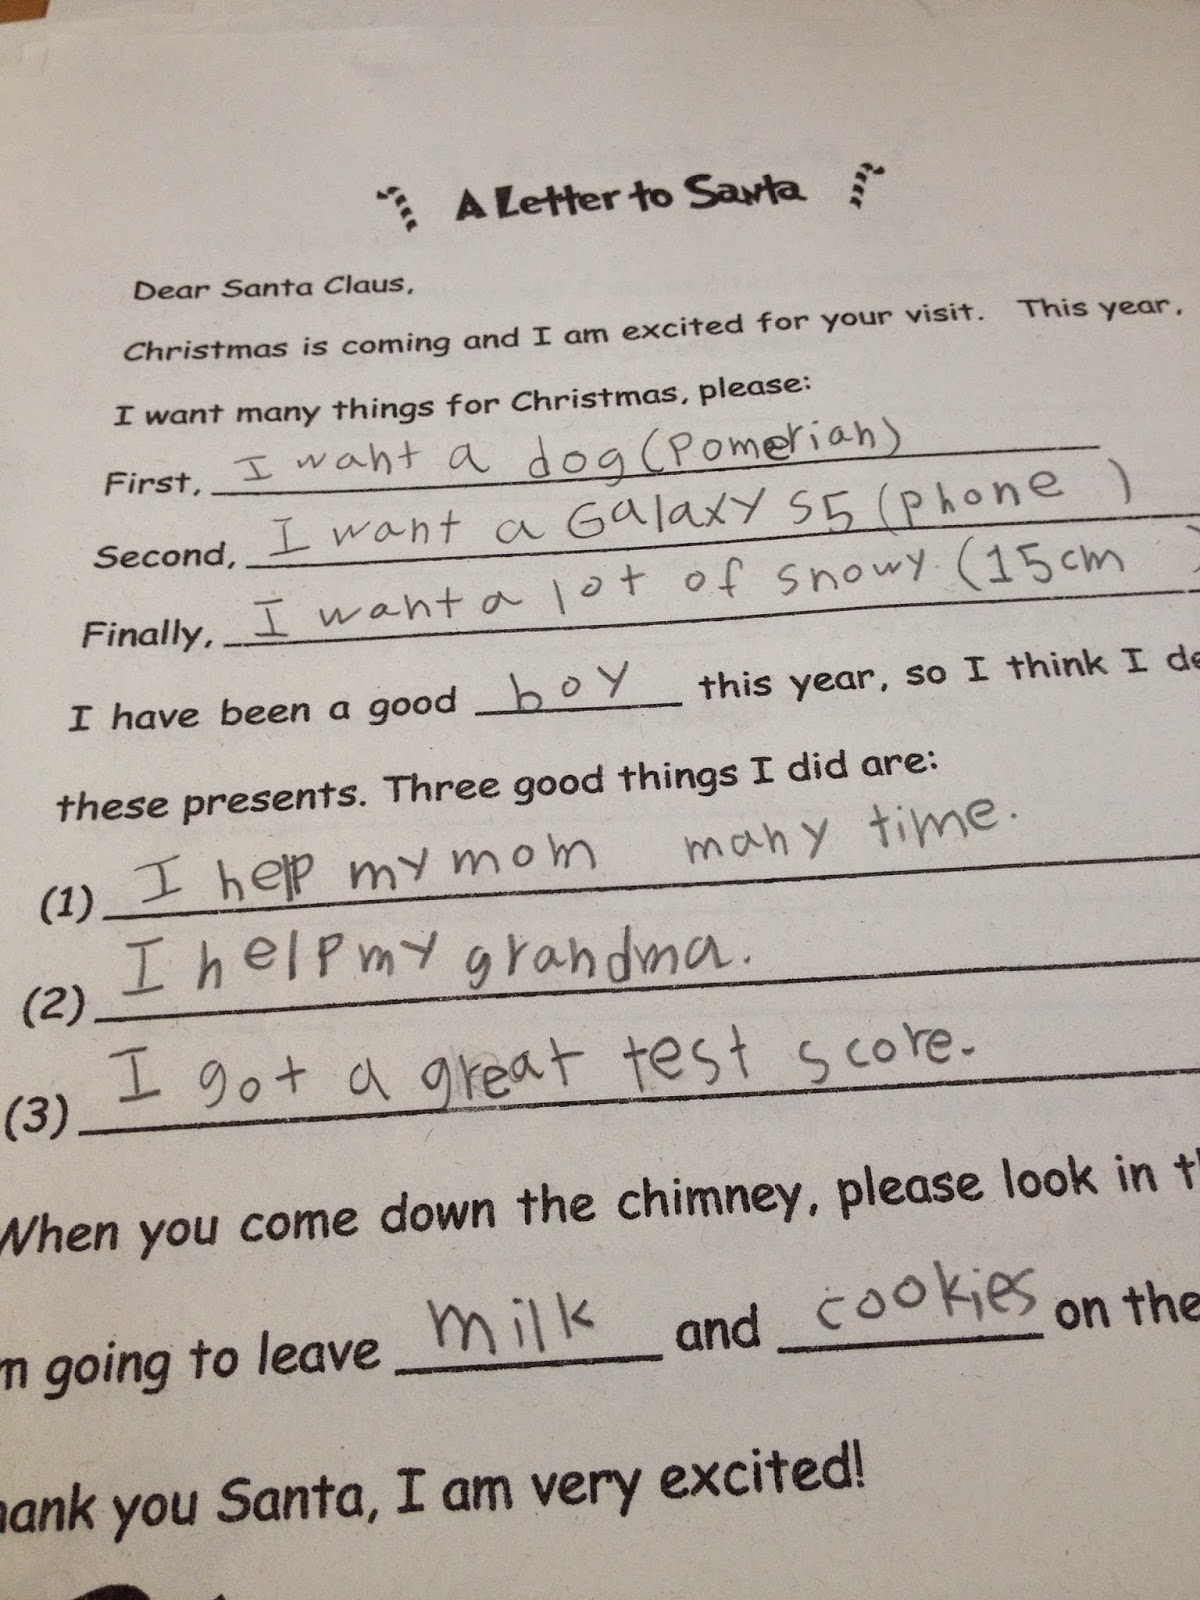 A Letter to Santa
Dear Santa Claus,
Christmas is coming and I am excited for your visit. This year,
I want many things for Christmas, please:
First, I want a dog (Pomerian)
Second, I want a Galaxy S5 (phone )
Finally, I want a lot of snowy (15cm )
I have been a good boy this year, so I think I de
these presents. Three good things I did are:
(1) I help my mom many time.
(2) I help my grandma.
(3) I got a great test score.
When you come down the chimney, please look in th
m going to leave milk and cookies on the
hank you Santa, I am very excited!